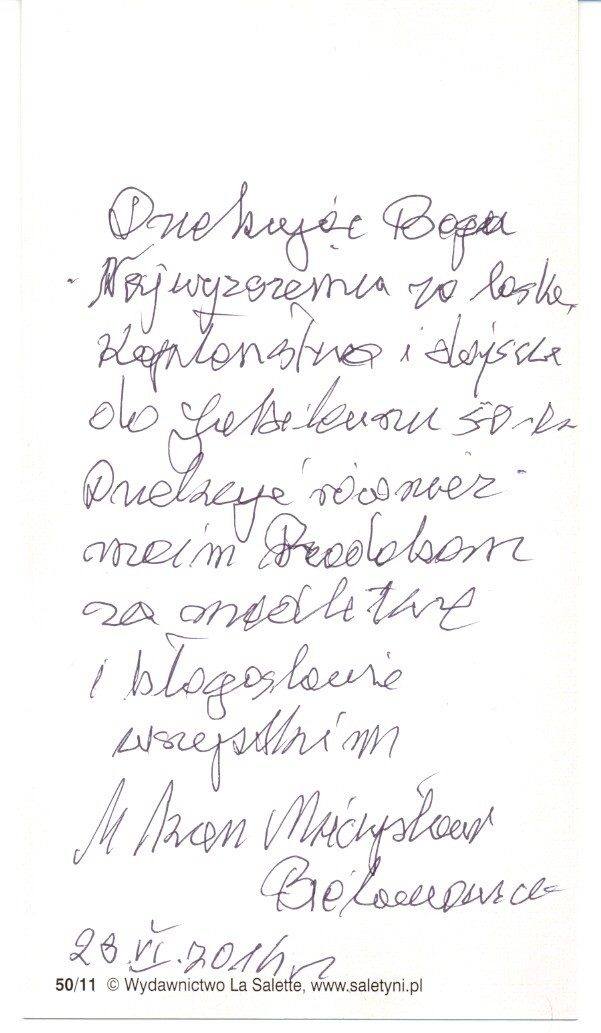 Dziękuję Bogu
Najwyższemu za łaskę
Kapłaństwa i dojście
do Jubileuszu 50-
Dziękuję również
moim Rodakom
za modlitwę
i błogosławię
wszystkim
Mieczysław
28.VI.2014 r
50/11 © Wydawnictwo La Salette, www.saletyni.pl